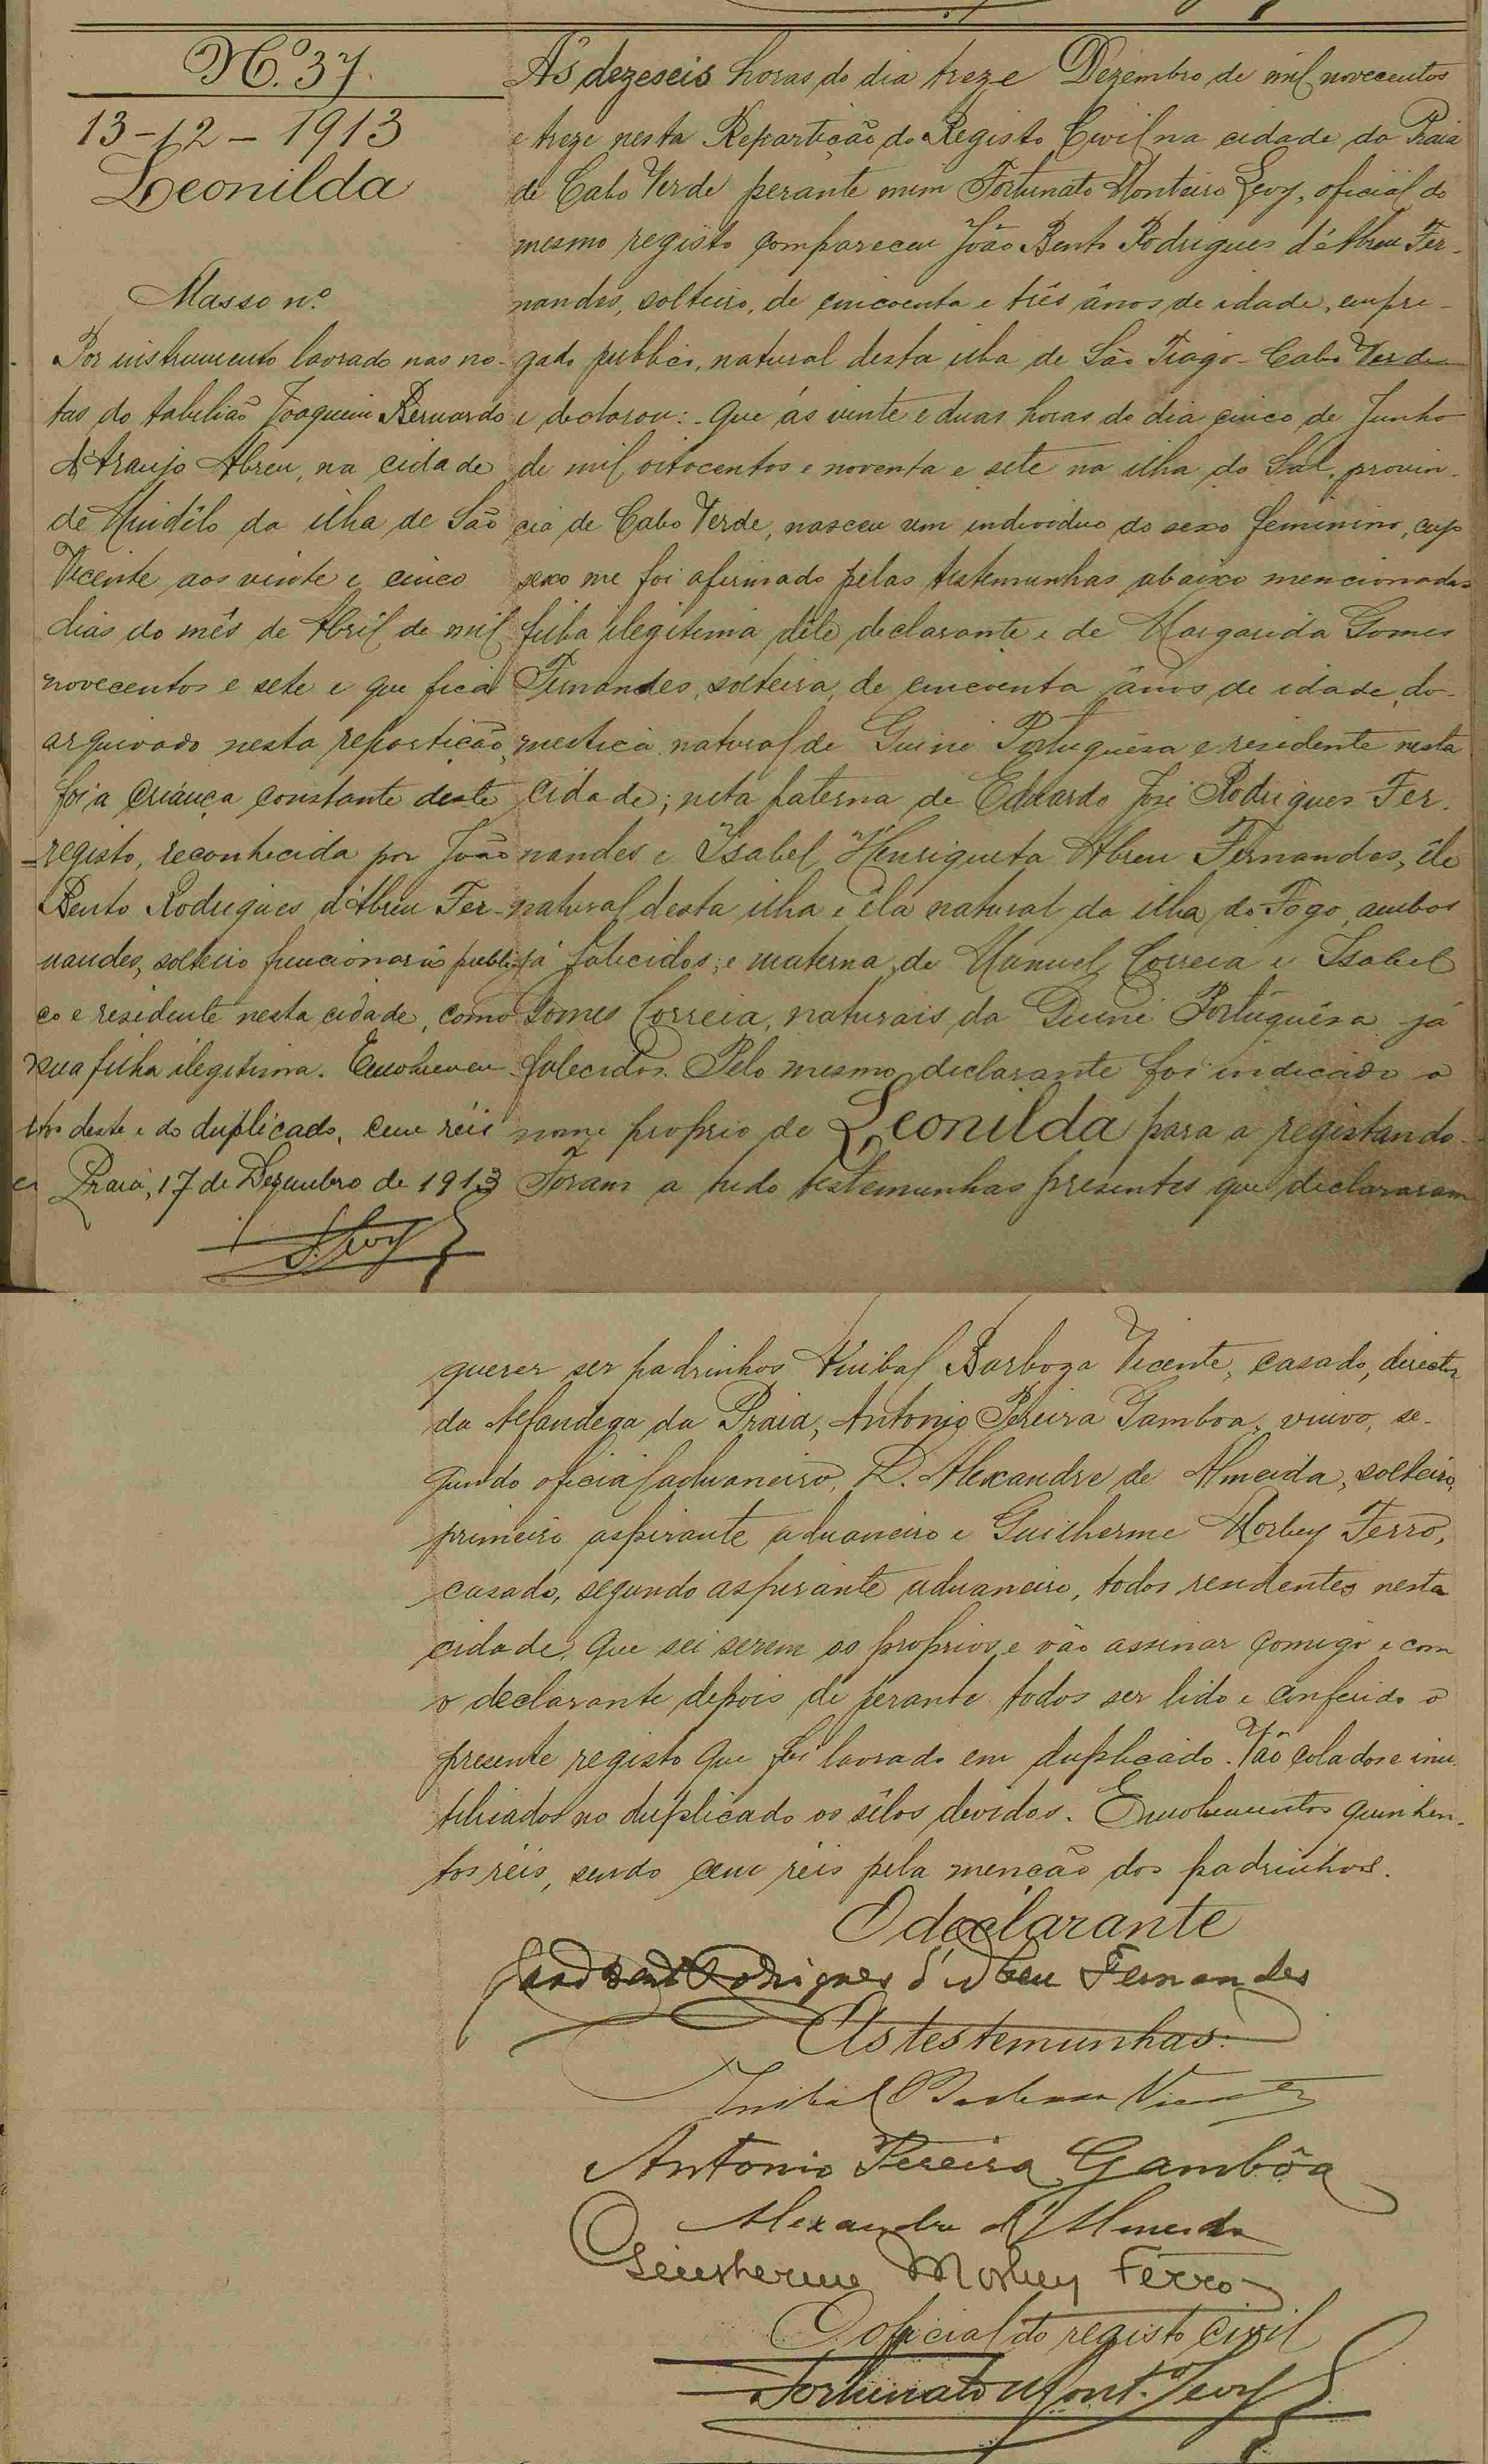 Nº.37.
13-12-1913
Leonilda
Masso nº
Por instrumento lavrado nas no-
tas do tabelião Joaquim Bernardo
d'Araujo Abreu, na cidade
de Mindêlo da ilha de São
Vicente aos vinte e cinco
dias do mês de Abril de mil
novecentos e sete e que fica
arquivado nesta repartição,
foi a criança constante deste
registo, reconhecida por João
Bento Rodrigues d'Abreu Fer-
nandes, solteiro funcionario publi-
co e residente nesta cidade, como
sua filha ilegitima. Emolumen
tos deste e do duplicado, cem réis
Praia, 17 de Dezembro de 1913
F. Levy
Ás dezeseis horas do dia treze Dezembro de mil novecentos
e treze nesta Repartição do Registo Civil na cidade da Praia
de Cabo Verde perante mim Fortunato Monteiro Levy, oficial do
mesmo registo compareceu João Bento Rodrigues d'Abreu Fer-
nandes, solteiro, de cincoenta e três ânos de idade, empre-
gado publico, natural desta ilha de São Tiago - Cabo Verde
e declarou: - Que ás vinte e duas horas do dia cinco de Junho
de mil oitocentos e noventa e sete na ilha do Sal, provin-
cia de Cabo Verde, nasceu um individuo do sexo feminino, cujo
sexo me foi afirmado pelas testemunhas abaixo mencionadas
filha ilegitima dêle declarante e de Margarida Gomes
Fernandes, solteira, de cincoenta ânos de idade, do-
mestica natural de Guiné Portuguêsa e residente nesta
cidade; neta paterna de Eduardo José Rodrigues Fer-
nandes e Isabel Henriqueta Abreu Fernandes, êle
natural desta ilha e éla natural da ilha do Fogo, ambos
já falecidos; e materna de Manuel Correia e Isabel
Gomes Correia, naturais da Guiné Portuguêsa já
falecidos. Pelo mesmo declarante foi indicado o
nome proprio de Leonilda para a registando.
Foram a tudo testemunhas presentes que declararam
querer ser padrinhos Anibal Barboza Vicente, casado, director
da Alfandega da Praia, Antonio Pereira Gamboa, viuvo, se-
gundo oficial aduaneiro, D. Alexandre de Almeida, solteiro,
primeiro aspirante aduaneiro e Guilherme Morbey Ferro,
casado, segundo aspirante aduaneiro, todos residentes nesta
cidade, que sei serem os proprios e vão assinar comigo e com
o declarante depois de perante todos ser lido e conferido o
presente registo que foi lavrado em duplicado. Vão colados e inu-
tilisados no duplicado os sêlos devidos. Emolumentos quinhen-
tos réis, sendo cem réis pela menção dos padrinhos.
O declarante
João Bento Rodrigues d'Abreu Fernandes
As testemunhas:
Anibal Barboza Vicente
Antonio Pereira Gambôa
Alexandre d'Almeida
Guilherme Morbey Ferro
O oficial do registo civil
Fortunato Mont. Levy